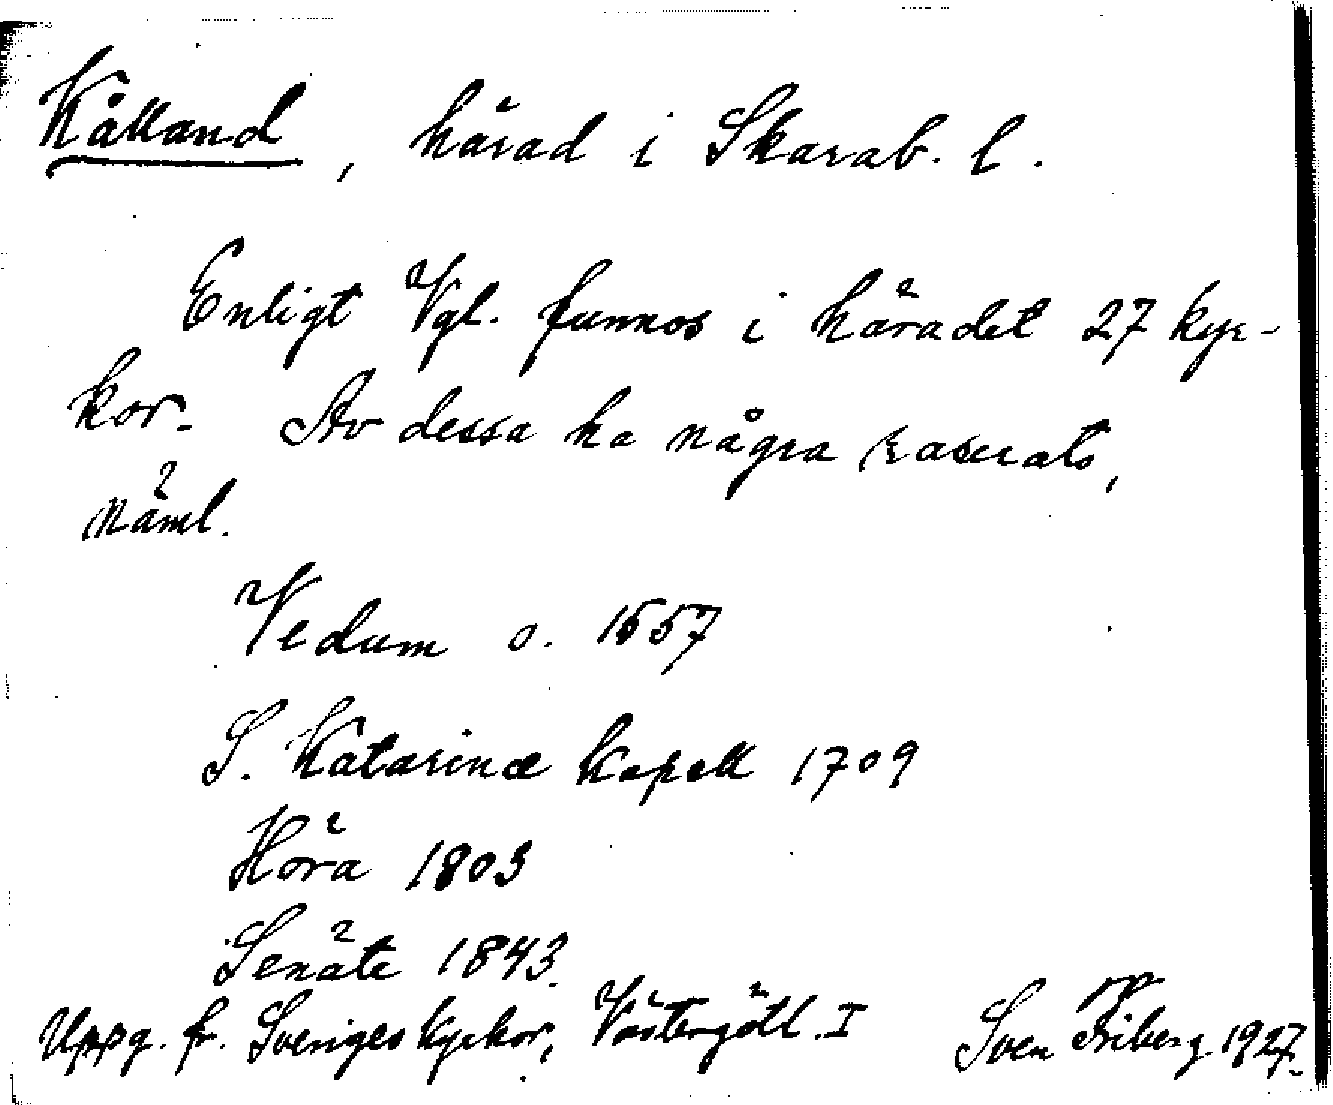 Kålland, härad i Skarab. l.
Enligt Vgl. funnos i häradet 27 kyr-
kor. Av dessa ha några raserats,
näml.
Vedum o. 1557
S. Katarinæ kapell 1709
Höra 1803
Senäte 1843.
Uppg. fr. Sveriges Kyrkor, Västergötl. I Sven Friberg 1927.